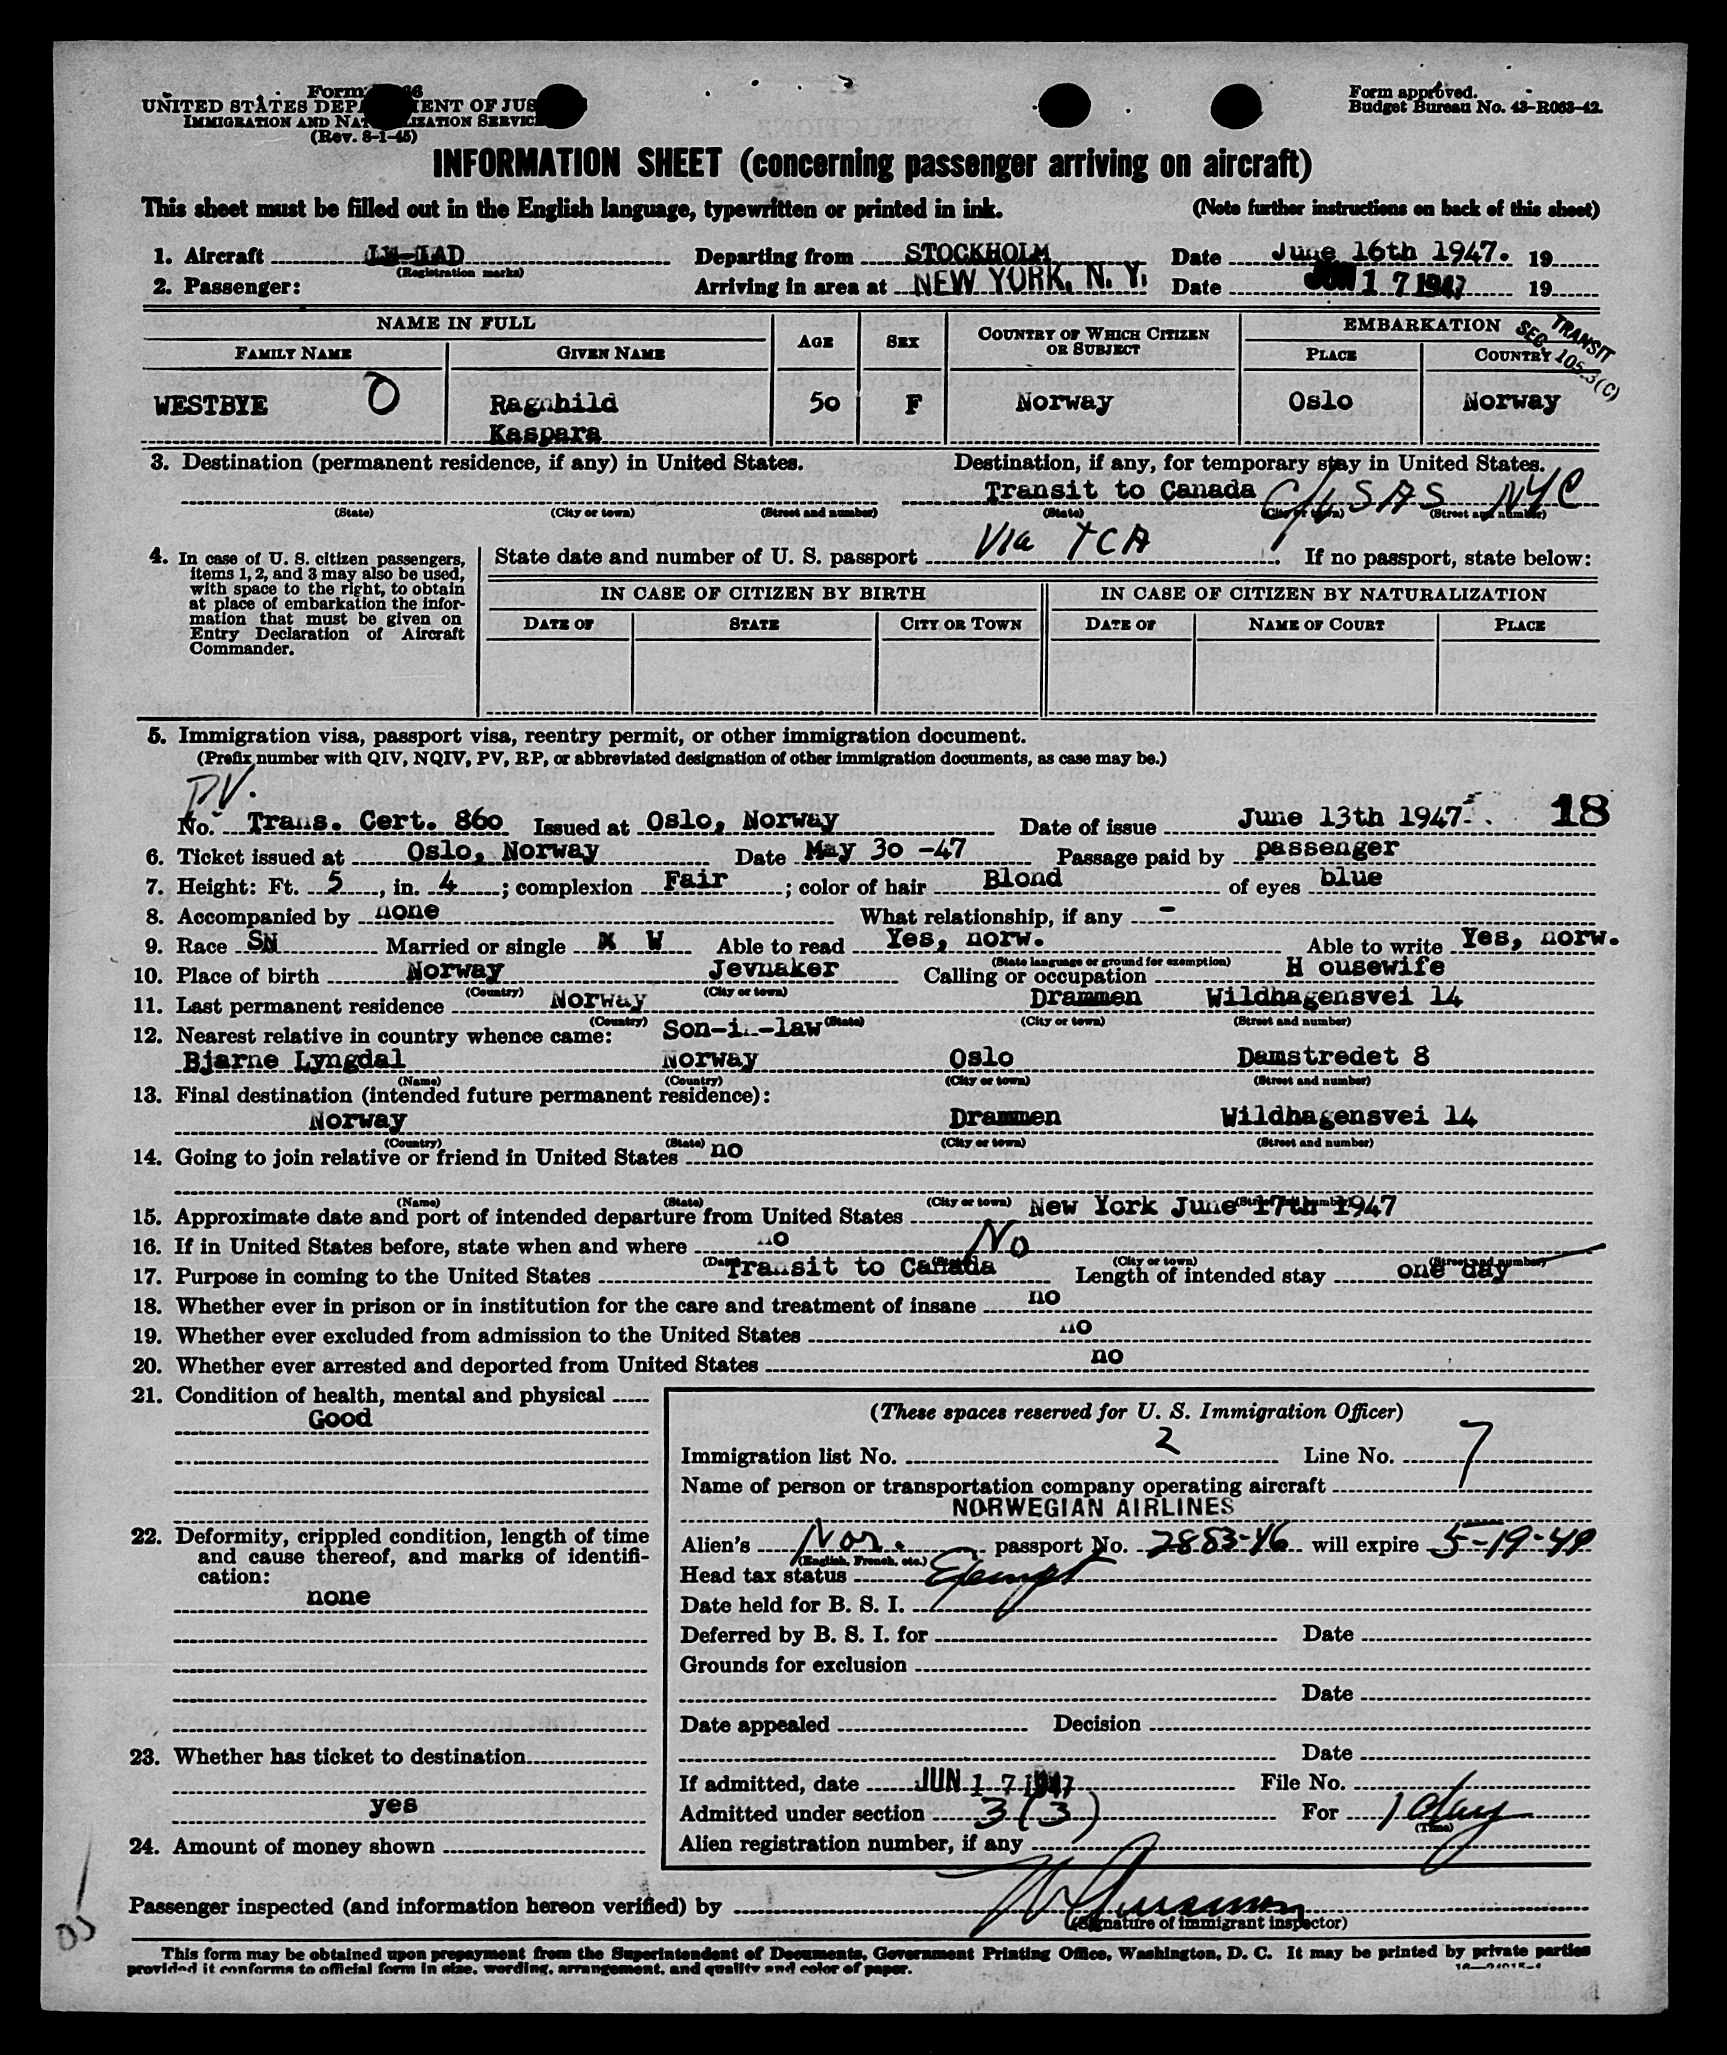 Form
UNITED STATES DEP ENT OF JUS
IMMIGRATION AND NAT IZATION SERVIC
(Rev. 8-1-45)
Form approved.
Budget Bureau No. 43-R063-42.
INFORMATION SHEET (concerning passenger arriving on aircraft)
This sheet must be filled out in the English language, typewritten or printed in ink. (Note further instructions on back of this sheet)
1. Aircraft LN-IAD Departing from STOCKHOLM Date June 16th 1947. 19
(Registration marks)
2. Passenger: Arriving in area at NEW YORK, N. Y. Date JUN 17 1947 19
NAME IN FULL AGE SEX COUNTRY OF WHICH CITIZEN OR SUBJECT EMBARKATION
FAMILY NAME GIVEN NAME PLACE COUNTRY
TRANSIT
SEC. 105.3(C)
WESTBYE O Ragnhild 50 F Norway Oslo Norway
Kaspara
3. Destination (permanent residence, if any) in United States. Destination, if any, for temporary stay in United States.
Transit to Canada C/o SAS NYC
(State) (City or town) (Street and number) (State) (City or town) (Street and number)
4. In case of U. S. citizen passengers, items 1, 2, and 3 may also be used, with space to the right, to obtain at place of embarkation the information that must be given on Entry Declaration of Aircraft Commander.
State date and number of U. S. passport Via TCA . If no passport, state below:
IN CASE OF CITIZEN BY BIRTH IN CASE OF CITIZEN BY NATURALIZATION
DATE OF STATE CITY OR TOWN DATE OF NAME OF COURT PLACE
5. Immigration visa, passport visa, reentry permit, or other immigration document.
(Prefix number with QIV, NQIV, PV, RP, or abbreviated designation of other immigration documents, as case may be.)
PV.
No. Trans. Cert. 860 Issued at Oslo, Norway Date of issue June 13th 1947. 18
6. Ticket issued at Oslo, Norway Date May 30 -47 Passage paid by passenger
7. Height: Ft. 5, in. 4; complexion Fair; color of hair Blond of eyes blue
8. Accompanied by none What relationship, if any -
9. Race SN Married or single W Able to read Yes, norw. Able to write Yes, norw.
(State language or ground for exemption)
10. Place of birth Norway Jevnaker Calling or occupation H ousewife
(Country) (City or town)
11. Last permanent residence Norway Drammen Wildhagensvei 14
(Country) (State) (City or town) (Street and number)
12. Nearest relative in country whence came: Son-in-law
Bjarne Lyngdal Norway Oslo Damstredet 8
(Name) (Country) (City or town) (Street and number)
13. Final destination (intended future permanent residence):
Norway Drammen Wildhagensvei 14
(Country) (State) (City or town) (Street and number)
14. Going to join relative or friend in United States no
(Name) (State) (City or town) (Street and number)
15. Approximate date and port of intended departure from United States New York June 17th 1947
16. If in United States before, state when and where no No
(Date) (State) (City or town) (Street and number)
17. Purpose in coming to the United States Transit to Canada Length of intended stay one day
18. Whether ever in prison or in institution for the care and treatment of insane no
19. Whether ever excluded from admission to the United States no
20. Whether ever arrested and deported from United States no
21. Condition of health, mental and physical
Good
22. Deformity, crippled condition, length of time and cause thereof, and marks of identification:
none
23. Whether has ticket to destination
yes
24. Amount of money shown
(These spaces reserved for U. S. Immigration Officer)
Immigration list No. 2 Line No. 7
Name of person or transportation company operating aircraft
NORWEGIAN AIRLINES
Alien's Nor. passport No. 2883-46 will expire 5-19-49
(English, French, etc.)
Head tax status Exempt
Date held for B. S. I.
Deferred by B. S. I. for Date
Grounds for exclusion
Date
Date appealed Decision
Date
If admitted, date JUN 17 1947 File No.
Admitted under section 3(3) For 1 day
(Time)
Alien registration number, if any
Passenger inspected (and information hereon verified) by
(Signature of immigrant inspector)
This form may be obtained upon prepayment from the Superintendent of Documents, Government Printing Office, Washington, D. C. It may be printed by private parties
provided it conforms to official form in size, wording, arrangement, and quality and color of paper.